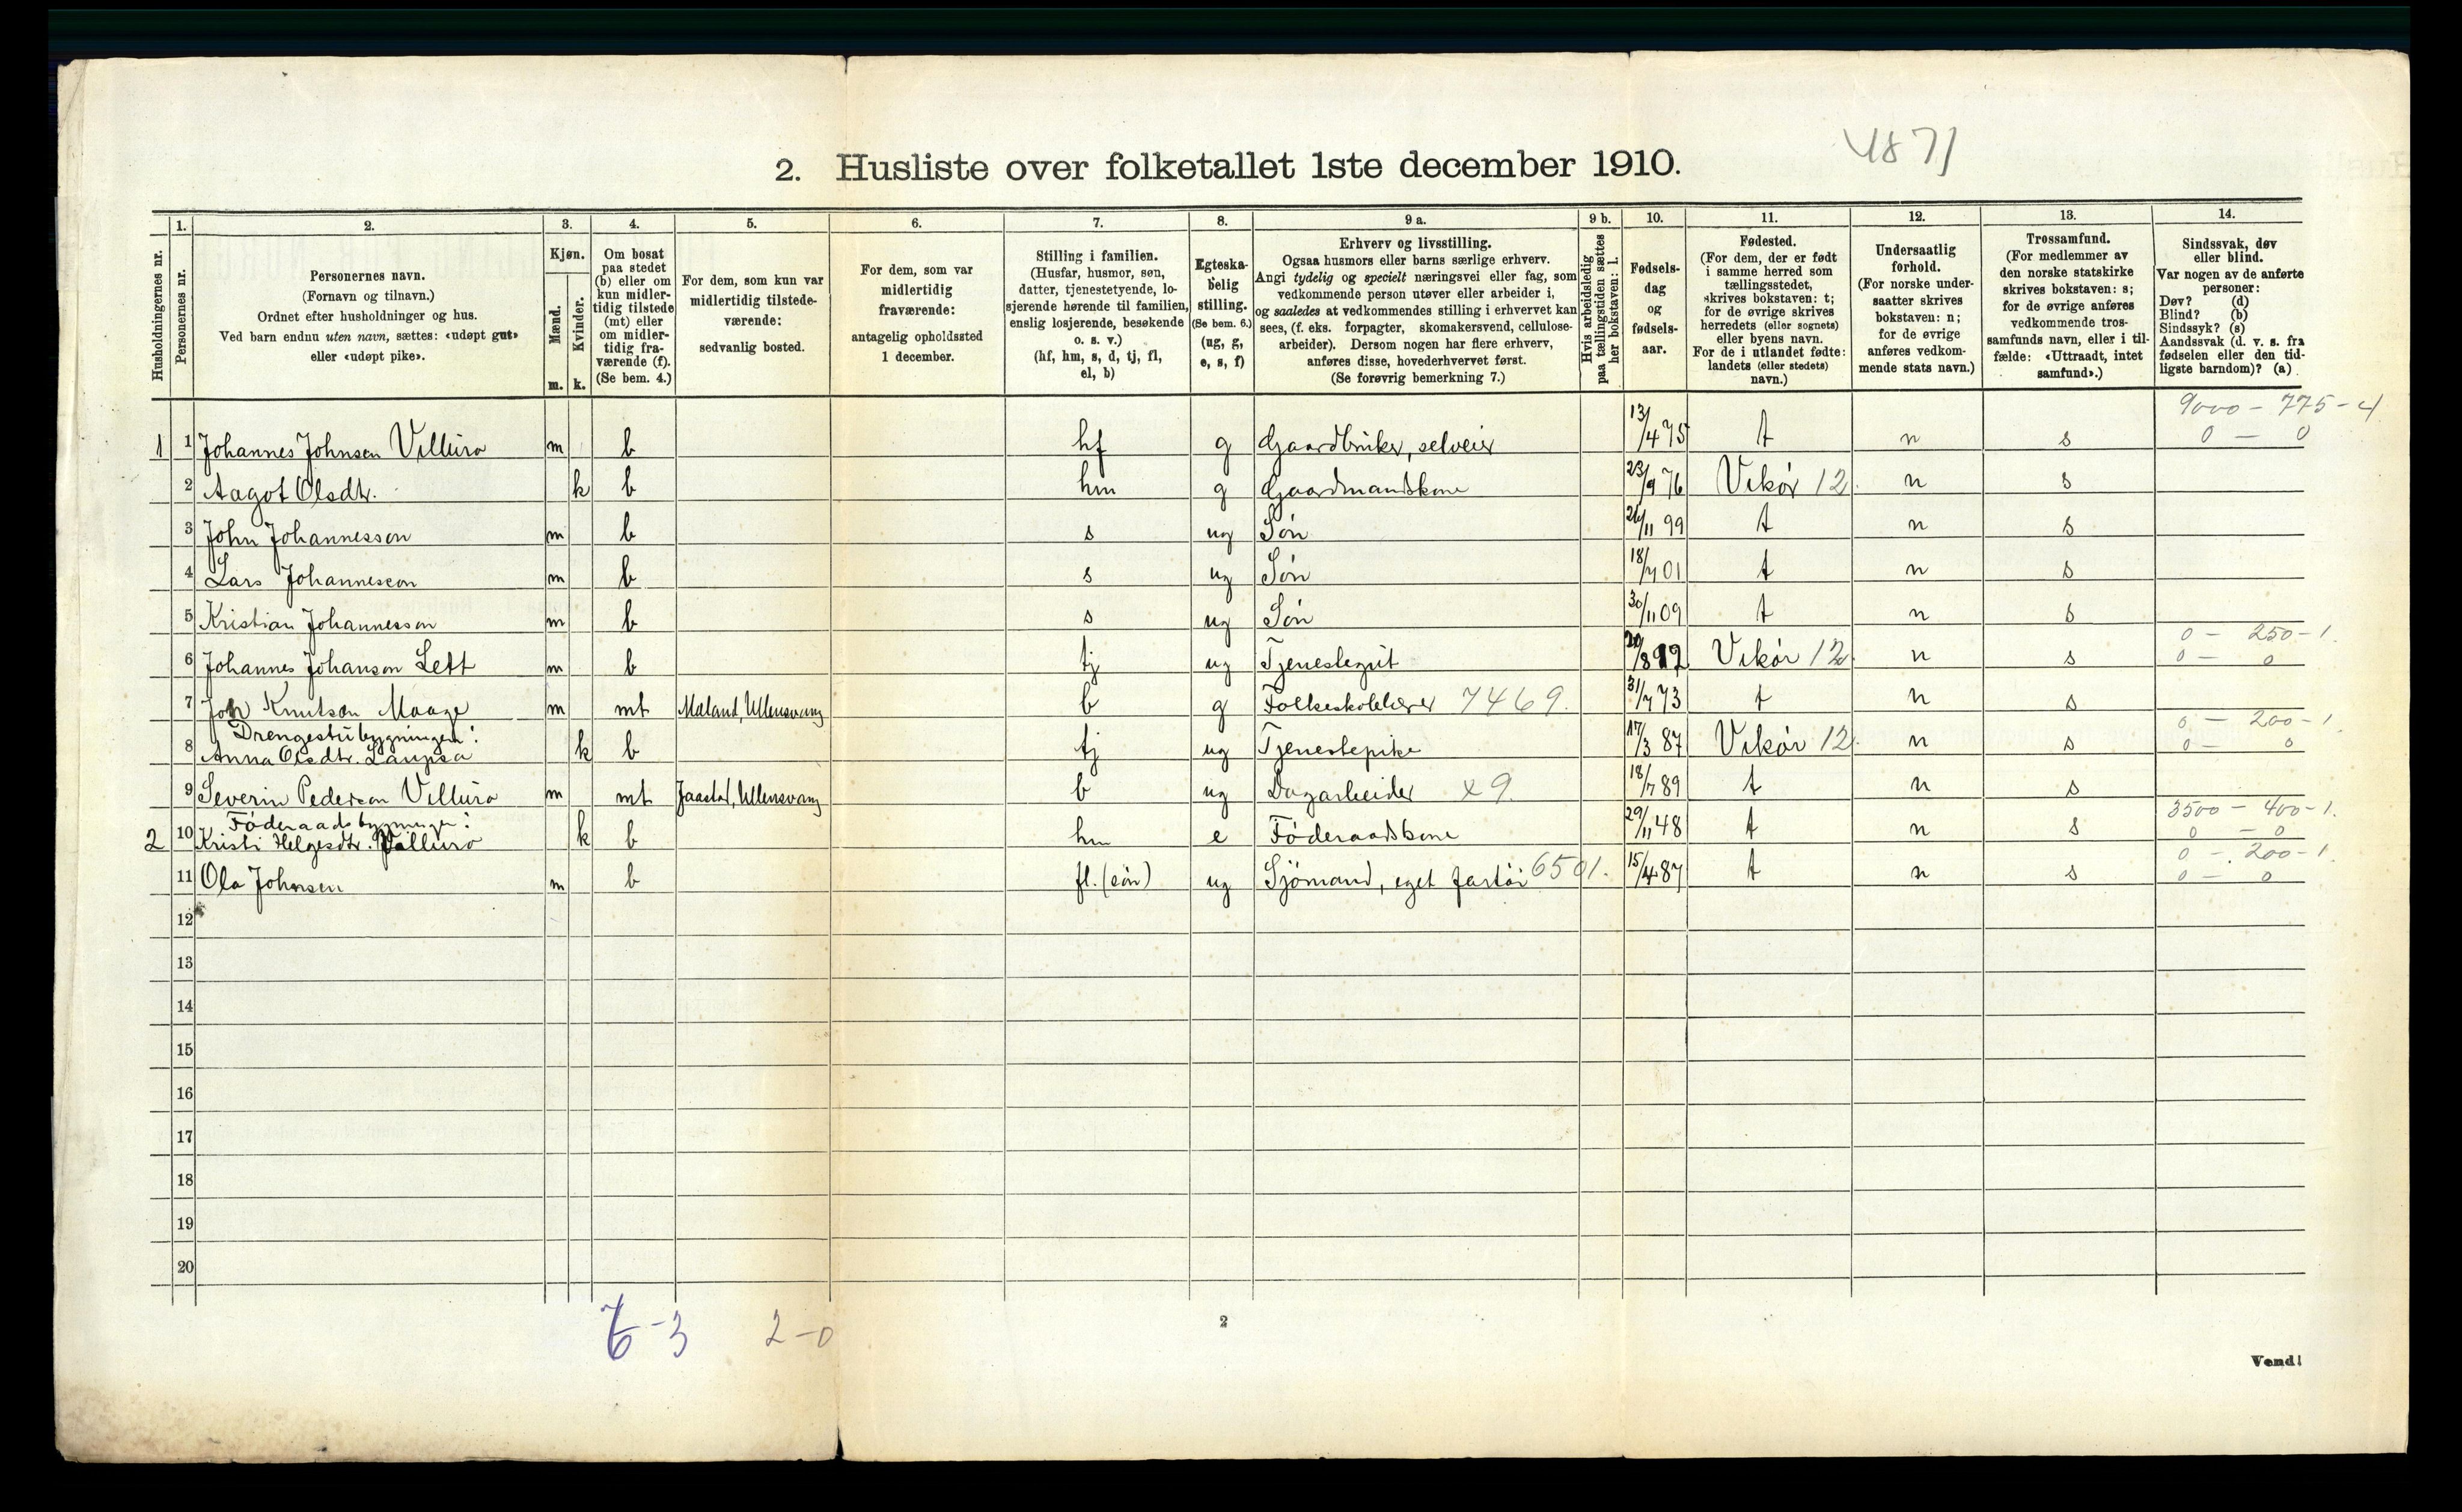 2. Husliste over folketallet 1ste december 1910.
1. 2. 3. 4. 5. 6. 7. 8. 9 a. 9 b. 10. 11. 12. 13. 14.
Husholdningernes nr.
Personernes nr.
Personernes navn.
(Fornavn og tilnavn.)
Ordnet efter husholdninger og hus.
Ved barn endnu uten navn, sættes: «udøpt gut»
eller «udøpt pike».
Kjøn.
Mænd.
m.
Kvinder.
k.
Om bosat
paa stedet
(b) eller om
kun midler-
tidig tilstede
(mt) eller
om midler-
tidig fra-
værende (f).
(Se bem. 4.)
For dem, som kun var
midlertidig tilstede-
værende:
sedvanlig bosted.
For dem, som var
midlertidig
fraværende:
antagelig opholdssted
1 december.
Stilling i familien.
(Husfar, husmor, søn,
datter, tjenestetyende, lo-
sjerende hørende til familien,
enslig losjerende, besøkende
o. s. v.)
(hf, hm, s, d, tj, fl,
el, b)
Egteska-
belig
stilling.
(Se bem. 6.)
(ug, g,
e, s, f)
Erhverv og livsstilling.
Ogsaa husmors eller barns særlige erhverv.
Angi tydelig og specielt næringsvei eller fag, som
vedkommende person utøver eller arbeider i,
og saaledes at vedkommendes stilling i erhvervet kan
sees, (f. eks. forpagter, skomakersvend, cellulose-
arbeider). Dersom nogen har flere erhverv,
anføres disse, hovederhvervet først.
(Se forøvrig bemerkning 7.)
Hvis arbeidsledig
paa tællingstiden sættes
her bokstaven: l.
Fødsels-
dag
og
fødsels-
aar.
Fødested.
(For dem, der er født
i samme herred som
tællingsstedet,
skrives bokstaven: t;
for de øvrige skrives
herredets (eller sognets)
eller byens navn.
For de i utlandet fødte:
landets (eller stedets)
navn.)
Undersaatlig
forhold.
(For norske under-
saatter skrives
bokstaven: n;
for de øvrige
anføres vedkom-
mende stats navn.)
Trossamfund.
(For medlemmer av
den norske statskirke
skrives bokstaven: s;
for de øvrige anføres
vedkommende tros-
samfunds navn, eller i til-
fælde: «Uttraadt, intet
samfund».)
Sindssvak, døv
eller blind.
Var nogen av de anførte
personer:
Døv? (d)
Blind? (b)
Sindssyk? (s)
Aandssvak (d. v. s. fra
fødselen eller den tid-
ligste barndom)? (a)
9000 - 775 - 4
1 1 Johannes Johnsen Villuro m b hf g Gaardbruker, selveier 13/4 75 t n s 0 - 0
2 Aagot Olsdtr. k b hm g Gaardmandskone 23/9 76 Vikør 12 n s
3 John Johannesson m b s ug Søn 26/11 99 t n s
4 Lars Johannesson m b s ug Søn 18/7 01 t n s
5 Kristian Johannesson m b s ug Søn 30/11 09 t n s
0 - 250 - 1.
6 Johannes Johanson Lett m b tj ug Tjenestegut /8 92 Vikør 12 n s 0 - 0
7 Jon Knutson Maage m mt Mæland, Ullensvang b g Folkeskolelærer 7469. 31/7 73 t n s
Drengestubygningen: 0 - 200 - 1
8 Anna Olsdtr. Laupsa k b tj ug Tjenestepike 17/3 87 Vikør 12. n s 0 - 0
9 Severin Pederson Villuro m mt Jaastad, Ullensvang b ug Dagarbeider x9. 18/7 89 t n s
Föderaadsbygningen: 3500 - 400 - 1.
2 10 Kristi Helgesdtr. Villuro k b hm e Föderaadskone 29/11 48 t n s 0 - 0
0 - 200 - 1.
11 Ola Johnsen m b fl. (søn) ug Sjömand, eget fartöi 6501. 15/4 87 t n s 0 - 0
12
13
14
15
16
17
18
19
20
6 - 3 2 - 0
2
Vend!